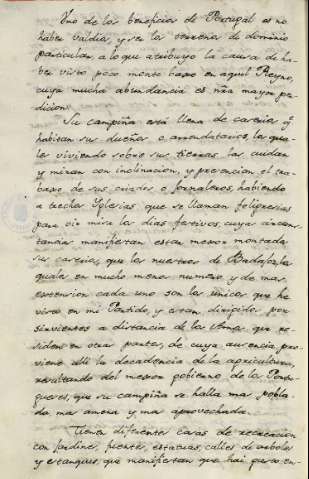 Uno de los beneficios de Portugal es no
haber valdios, y ser los terrenos de dominio
particular, a lo que atribuyo la causa de ha-
ber visto poco monte bajo en aquel Reyno,
cuya mucha abundancia es ntra mayor per-
dicion.
Su campiña está llena de caserias q.
habitan sus dueños o arrendatarios, los qua-
les viviendo sobre sus tierras las cuidan
y miran con inclinacion, y presencian el tra-
bajo de sus criados o jornaleros, habiendo
a trechos Yglesias que se llaman feligresias
para oir misa los dias festivos, cuya circuns-
tancia manifiestan estar mejor montadas
sus caserias, que las nuestras de Badajoz las
quales en mucho menor numero y de mas
extension cada una son las unicas que he
visto en mi Partido, y estan dirigidas por
sirvientes a distancia de los Amos que re-
siden en otra parte, de cuya ausencia pro-
viene alli la decadencia de la agricultura,
resultando del mejor gobierno de los Portu-
gueses, que su campiña se halla mas pobla-
da, mas amena y mas aprovechada.
Tienen diferentes casas de recreacion
con jardines, fuentes, estatuas, calles de arboles
y estanques, que manifiestan que hai gusto en-